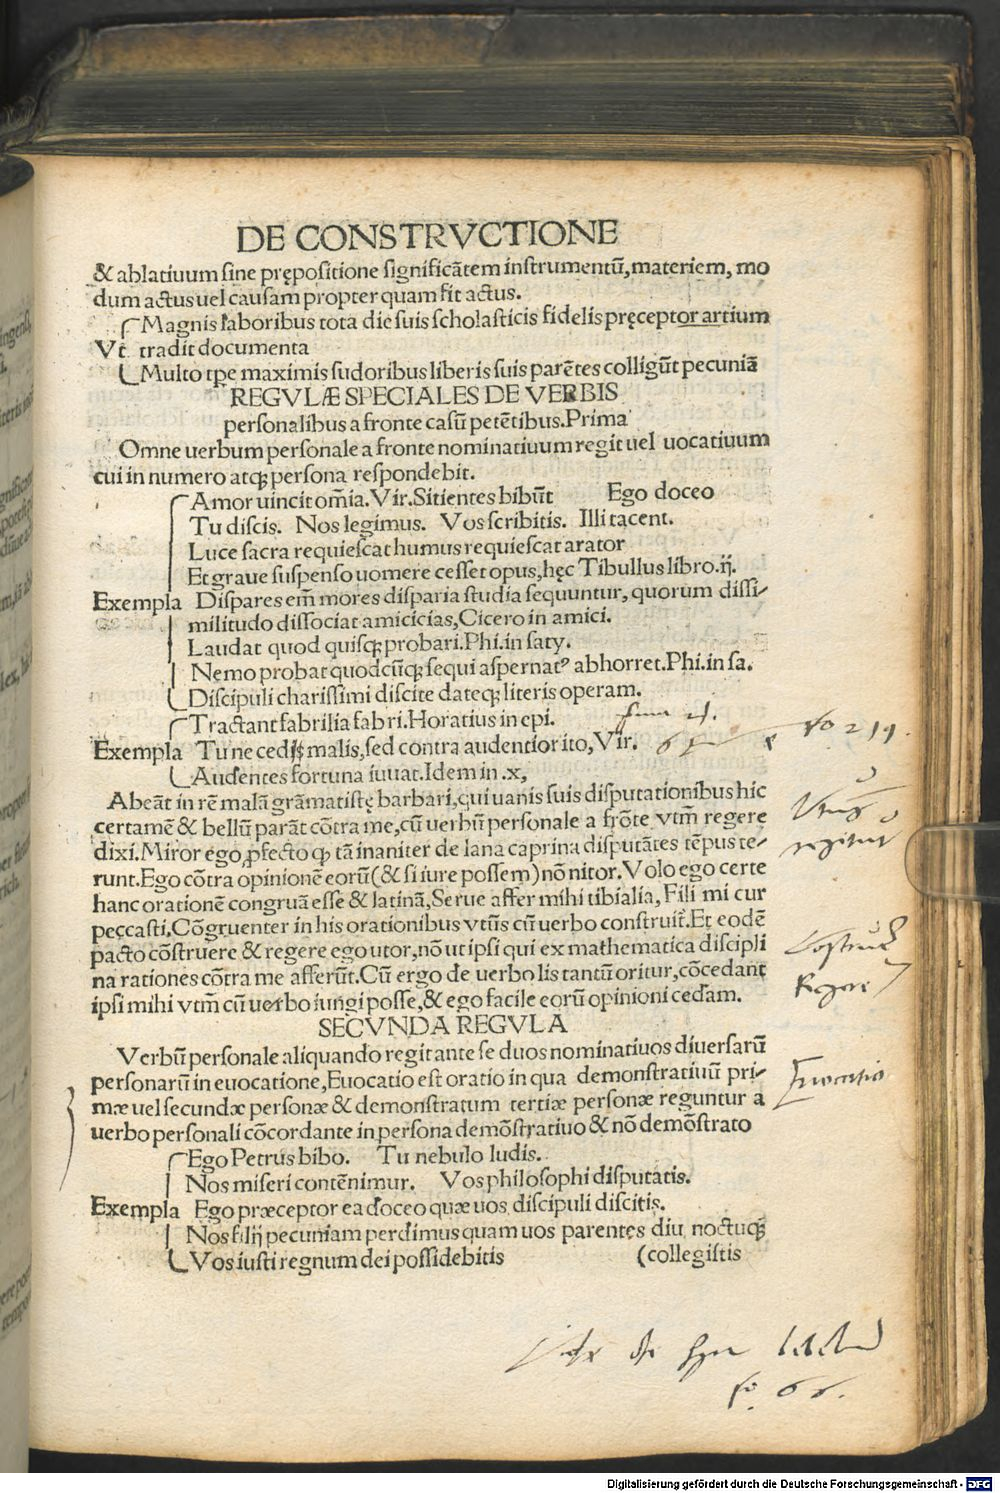 DE CONSTRVCTIONE
& ablatiuum sine prępositione significātem instrumentū, materiem, mo
dum actus uel causam propter quam fit actus.
Magnis laboribus tota die suis scholasticis fidelis pręceptor artium
Vt tradit documenta
Multo tp̄e maximis sudoribus liberis suis parētes colligūt pecuniā
REGVLÆ SPECIALES DE VERBIS
personalibus a fronte casū petētibus. Prima
Omne uerbum personale a fronte nominatiuum regit uel uocatiuum
cui in numero atq; persona respondebit.
Amor uincit om̄ia. Vir. Sitientes bibūt Ego doceo
Tu discis. Nos legimus. Vos scribitis. Illi tacent.
Luce sacra requiescat humus requiescat arator
Et graue suspenso uomere cesset opus, hęc Tibullus libro .ij.
Exempla Dispares em̄ mores disparia studia sequuntur, quorum dissi-
militudo dissociat amicicias, Cicero in amici.
Laudat quod quisq; probari. Phi. in saty.
Nemo probat quodcūq; sequi aspernat᷒ abhorret. Phi. in sa.
Discipuli charissimi discite dateq; literis operam.
Tractant fabrilia fabri. Horatius in epi.
Exempla Tu ne cedis malis, sed contra audentior ito, Vir. fo 211.
Audentes fortuna iuuat. Idem in .x,
Abeāt in rē malā grāmatistę barbari, qui uanis suis disputationibus hic
certamē & bellū parāt cōtra me, cū uerbū personale a frōte vtm̄ regere
dixi. Miror ego ꝓfecto ꝙ tā inaniter de lana caprina disputātes tēpus te-
runt. Ego cōtra opinionē eorū (& si iure possem) nō nitor. Volo ego certe
hanc orationē congruā esse & latinā, Serue affer mihi tibialia, Fili mi cur
peccasti, Cōgruenter in his orationibus vtūs cū uerbo construit᷒. Et eodē
pacto cōstruere & regere ego utor, nō ut ipsi qui ex mathematica discipli
na rationes cōtra me afferūt. Cū ergo de uerbo lis tantū oritur, cōcedant
ipsi mihi vtm̄ cū uerbo iungi posse, & ego facile eorū opinioni cedam.
Regere
SECVNDA REGVLA
Verbū personale aliquando regit ante se duos nominatiuos diuersarū
personarū in euocatione, Euocatio est oratio in qua demonstratiuū pri-
Euocatio
mæ uel secundæ personæ & demonstratum tertiæ personæ reguntur a
uerbo personali cōcordante in persona demōstratiuo & nō demōstrato
Ego Petrus bibo. Tu nebulo ludis.
Nos miseri contēnimur. Vos philosophi disputatis.
Exempla Ego præceptor ea doceo quæ uos discipuli discitis.
Nos filij pecuniam perdimus quam uos parentes diu noctuq;
Vos iusti regnum dei possidebitis (collegistis
fo. 66.
Digitalisierung gefördert durch die Deutsche Forschungsgemeinschaft - DFG